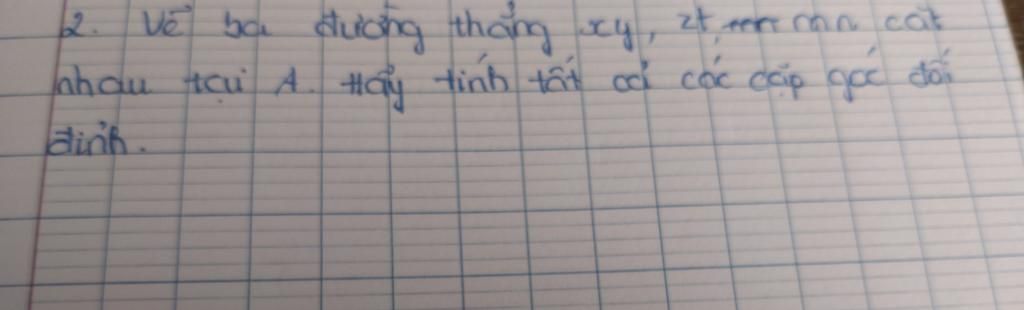 2. Vẽ ba đường thẳng xy, zt, mn cắt
nhau tại A. Hãy tính tất cả các cặp góc đối
đỉnh.